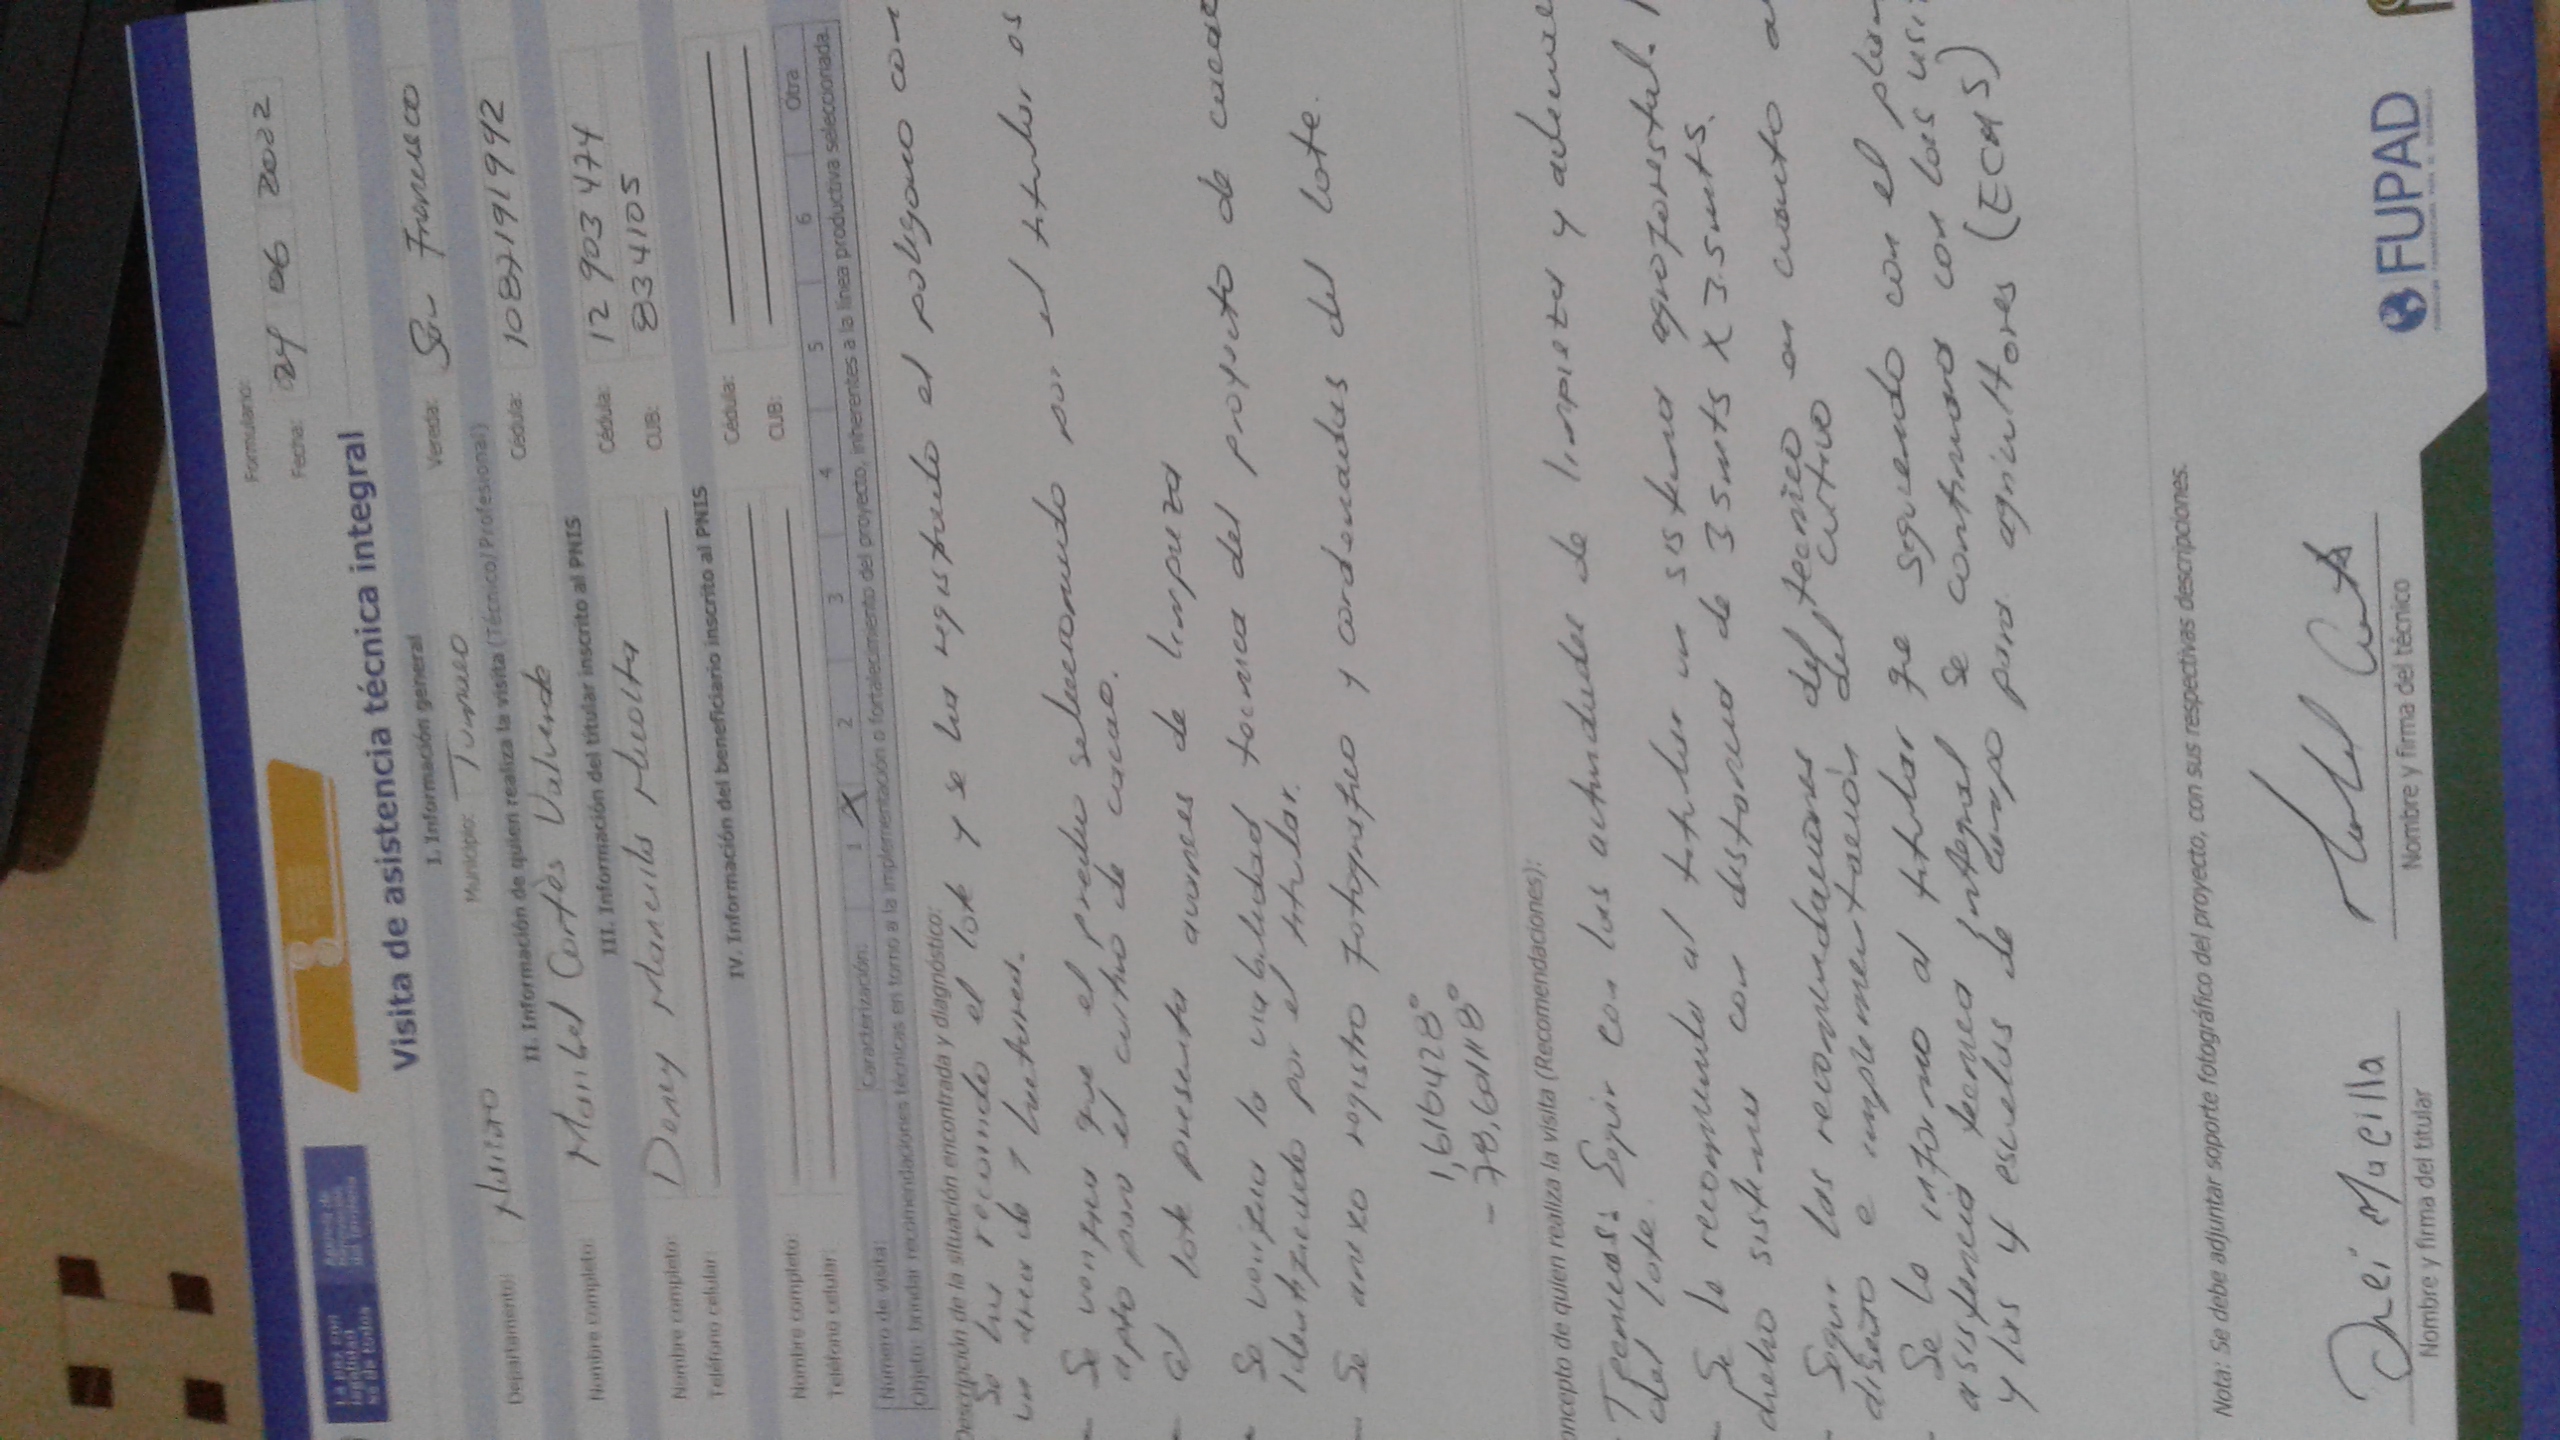 Formulario:
Fecha: 24 06 2022
Visita de asistencia técnica integral
I. Información general
Departamento: Nariño Municipio: Tumaco Vereda: San Francisco
II. Información de quien realiza la visita (Técnico/Profesional)
Nombre completo: Maribel Cortés Valverde Cédula: 1087191992
III. Información del titular inscrito al PNIS
Nombre completo: Deney Mancilla Cédula: 12 903 474
Teléfono celular: CUB: 834105
IV. Información del beneficiario inscrito al PNIS
Nombre completo: Cédula:
Teléfono celular: CUB:
Número de visita: Caracterización: 1 X 2 3 4 5 6 Otra
Objeto: brindar recomendaciones técnicas en torno a la implementación o fortalecimiento del proyecto, inherentes a la línea productiva seleccionada.
Descripción de la situación encontrada y diagnóstico:
Se ha recorrido el lote y se ha registrado el poligono con
un area de 1 hectarea.
- Se verifica que el predio seleccionado por el titular es
apto para el cultivo de cacao.
- el lote presenta avances de limpieza
- Se verifica la viabilidad tecnica del proyecto de cacao
identificado por el titular.
- Se anexo registro fotografico y cordenadas del lote.
1,616428°
- 78,601118°
oncepto de quien realiza la visita (Recomendaciones):
Tecnicas Seguir con las actividades de limpieza y
del lote.
- Se le recomienda al titular un sistema agroforestal.
dicho sistema con distancia de 3.5 mts X 3.5 mts.
- Seguir las recomendaciones del tecnico en cuanto a
diseño e implementación del cultivo
- Se le informo al titular que siguiendo con el plan
asistencia tecnica integral se continuara con las
y las y escuelas de campo para agricultores (ECAS)
Nota: Se debe adjuntar soporte fotográfico del proyecto, con sus respectivas descripciones.
Nombre y firma del titular
Nombre y firma del técnico
FUPAD